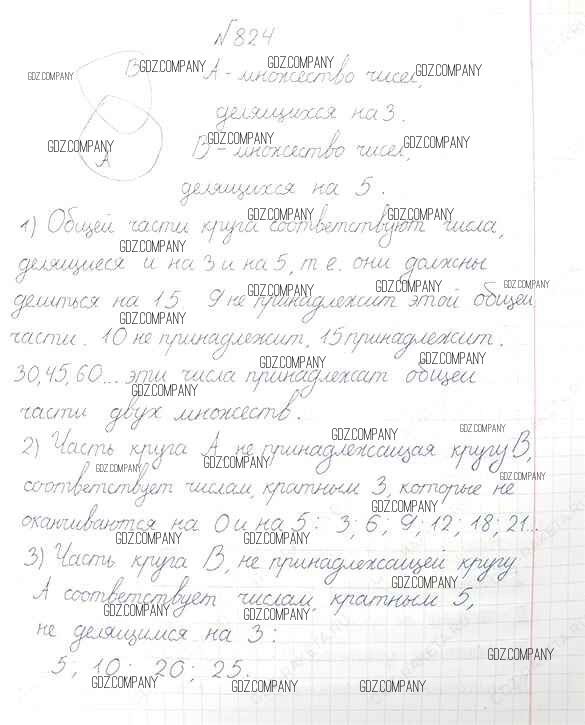 № 824
В А - множество чисел,
делящихся на 3.
А В - множество чисел,
делящихся на 5.
1) Общей части круга соответствуют числа,
делящиеся и на 3 и на 5, т.е. они должны
делиться на 15. 9 не принадлежит этой общей
части. 10 не принадлежит, 15 принадлежит.
30, 45, 60... эти числа принадлежат общей
части двух множеств.
2) Часть круга А не принадлежащая кругу В,
соответствует числам, кратным 3, которые не
оканчиваются на 0 и на 5: 3; 6; 9; 12; 18; 21...
3) Часть круга В, не принадлежащей кругу
А соответствует числам, кратным 5,
не делящимся на 3:
5; 10; 20; 25.